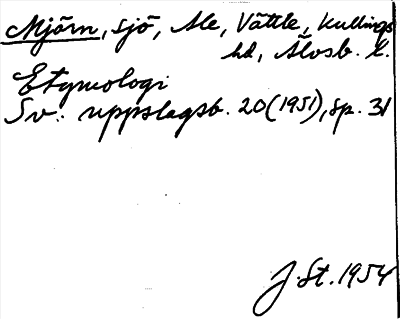 Mjörn, sjö, Ale, Vättle, Kullings
hd, Älvsb. l.
Etymologi
Sv. uppslagsb. 20 (1951), sp. 31
J. St. 1954